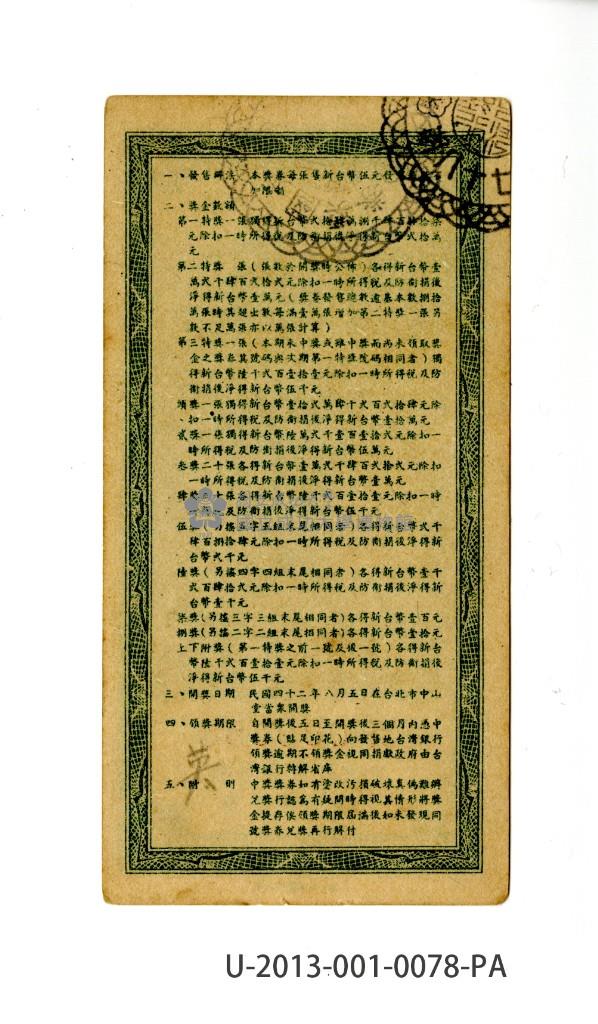 一、發售辦法　本獎券每張售新台幣伍元發
加限制
二、獎金數額
第一特獎一張獨得新台幣式拾
元除扣一時所得稅及防衛捐後淨得新台幣式拾萬
元
第二特獎　張(張數於開獎時公佈)各得新台幣壹
萬式千肆百式拾式元除扣一時所得稅及防衛捐後
淨得新台幣壹萬元(獎券發售總數逾基本數捌拾
萬張時其超出數每滿壹萬張增加第二特獎一張另
數不足萬張亦以萬張計算)
第三特獎一張(本期未中獎或雖中獎而尚未領取獎
金之獎券其號碼與次期第一特獎號碼相同者)獨
得新台幣陸千式百壹拾壹元除扣一時所得稅及防
衛捐後淨得新台幣伍千元
頭獎一張獨得新台幣壹拾式萬肆千式百式拾肆元除
扣一時所得稅及防衛捐後淨得新台幣壹拾萬元
貳獎一張獨得新台幣陸萬式千壹百壹拾式元除扣一
時所得稅及防衛捐後淨得新台幣伍萬元
叁獎二十張各得新台幣壹萬式千肆百式拾式元除扣
一時所得稅及防衛捐後淨得新台幣壹萬元
肆獎 十張各得新台幣陸千式百壹拾壹元除扣一時
所得稅及防衛捐後淨得新台幣伍千元
伍獎(另搖五字五組末尾相同者)各得新台幣式千
肆百捌拾肆元除扣一時所得稅及防衛捐後淨得新
台幣式千元
陸獎(另搖四字四組末尾相同者)各得新台幣壹千
式百肆拾式元除扣一時所得稅及防衛捐後淨得新
台幣壹千元
柒獎(另搖三字三組末尾相同者)各得新台幣壹百元
捌獎(另搖二字二組末尾相同者)各得新台幣壹拾元
上下附獎(第一特獎之前一號及後一號)各得新台
幣陸千式百壹拾壹元除扣一時所得稅及防衛捐後
淨得新台幣伍千元
三、開獎日期　民國四十二年八月五日在台北市中山
堂當衆開獎
四、領獎期限　自開獎後五日至開獎後三個月內憑中
獎券(貼足印花)向發售地台灣銀行
領獎逾期不領獎金視同捐獻政府由台
灣銀行特解省庫
五、附　則　中獎獎券如有塗改污損破壞真偽難辨
兌獎行認為有疑問時得視其情形將獎
金提存俟領獎期限屆滿後如未發現同
號獎券兌獎再行解付
英
U-2013-001-0078-PA